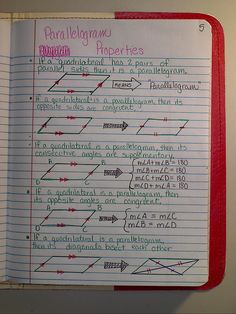 5
Parallelogram
Properties
If a quadrilateral has 2 pairs of
parallel sides then it is a parallelogram.
MEANS "Parallelogram"
If a quadrilateral is a parallelogram, then its
opposite sides are congruent.
If a quadrilateral is a parallelogram, then its
consecutive angles are supplementary.
A B
D C
m∠A+m∠B=180
m∠B+m∠C=180
m∠C+m∠D=180
m∠D+m∠A=180
If a quadrilateral is a parallelogram, then
its opposite angles are congruent.
A B
D C
m∠A = m∠C
m∠B = m∠D
If a quadrilateral is a parallelogram,
then its diagonals bisect each other